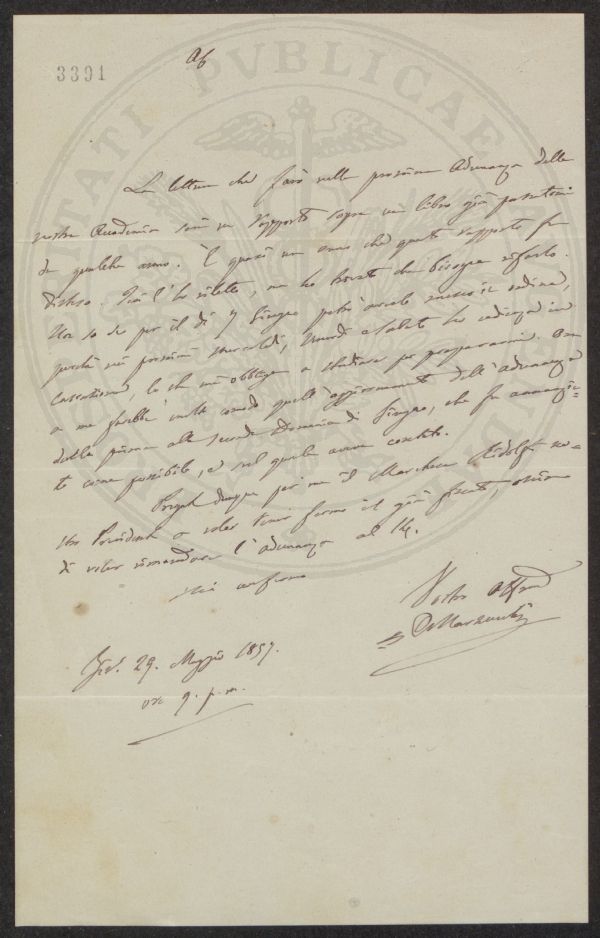 3391
PVBLICAE
La lettura che farò nella prossima Adunanza della
nostra Accademia sarà un Rapporto sopra un libro già passatomi
da qualche anno. È quasi un anno che questo rapporto fu
disteso. Ora l'ho riletto, ma ho trovato che bisogna rifarlo.
Non so se per il dì 7 Giugno potrò averlo messo in ordine,
perchè nei prossimi Mercoldì, Venerdì e Sabato ho udienza in
Cassazione, lo che mi obbliga a studiare per prepararmi. Onde
a me farebbe molto comodo quell'aggiornamento dell'adunanza
dalla prima alla seconda Domenica di Giugno, che fu annunzia-
to come possibile, e nel quale avevo contato.
Pregate dunque per me il Marchese Ridolfi no-
stro Presidente a voler tener fermo il già fissato, ossia
di voler rimandare l'adunanza al 14.
Mi confermo
Vostro Aff
Di 29. Maggio 1857.
ore 9. p. m.